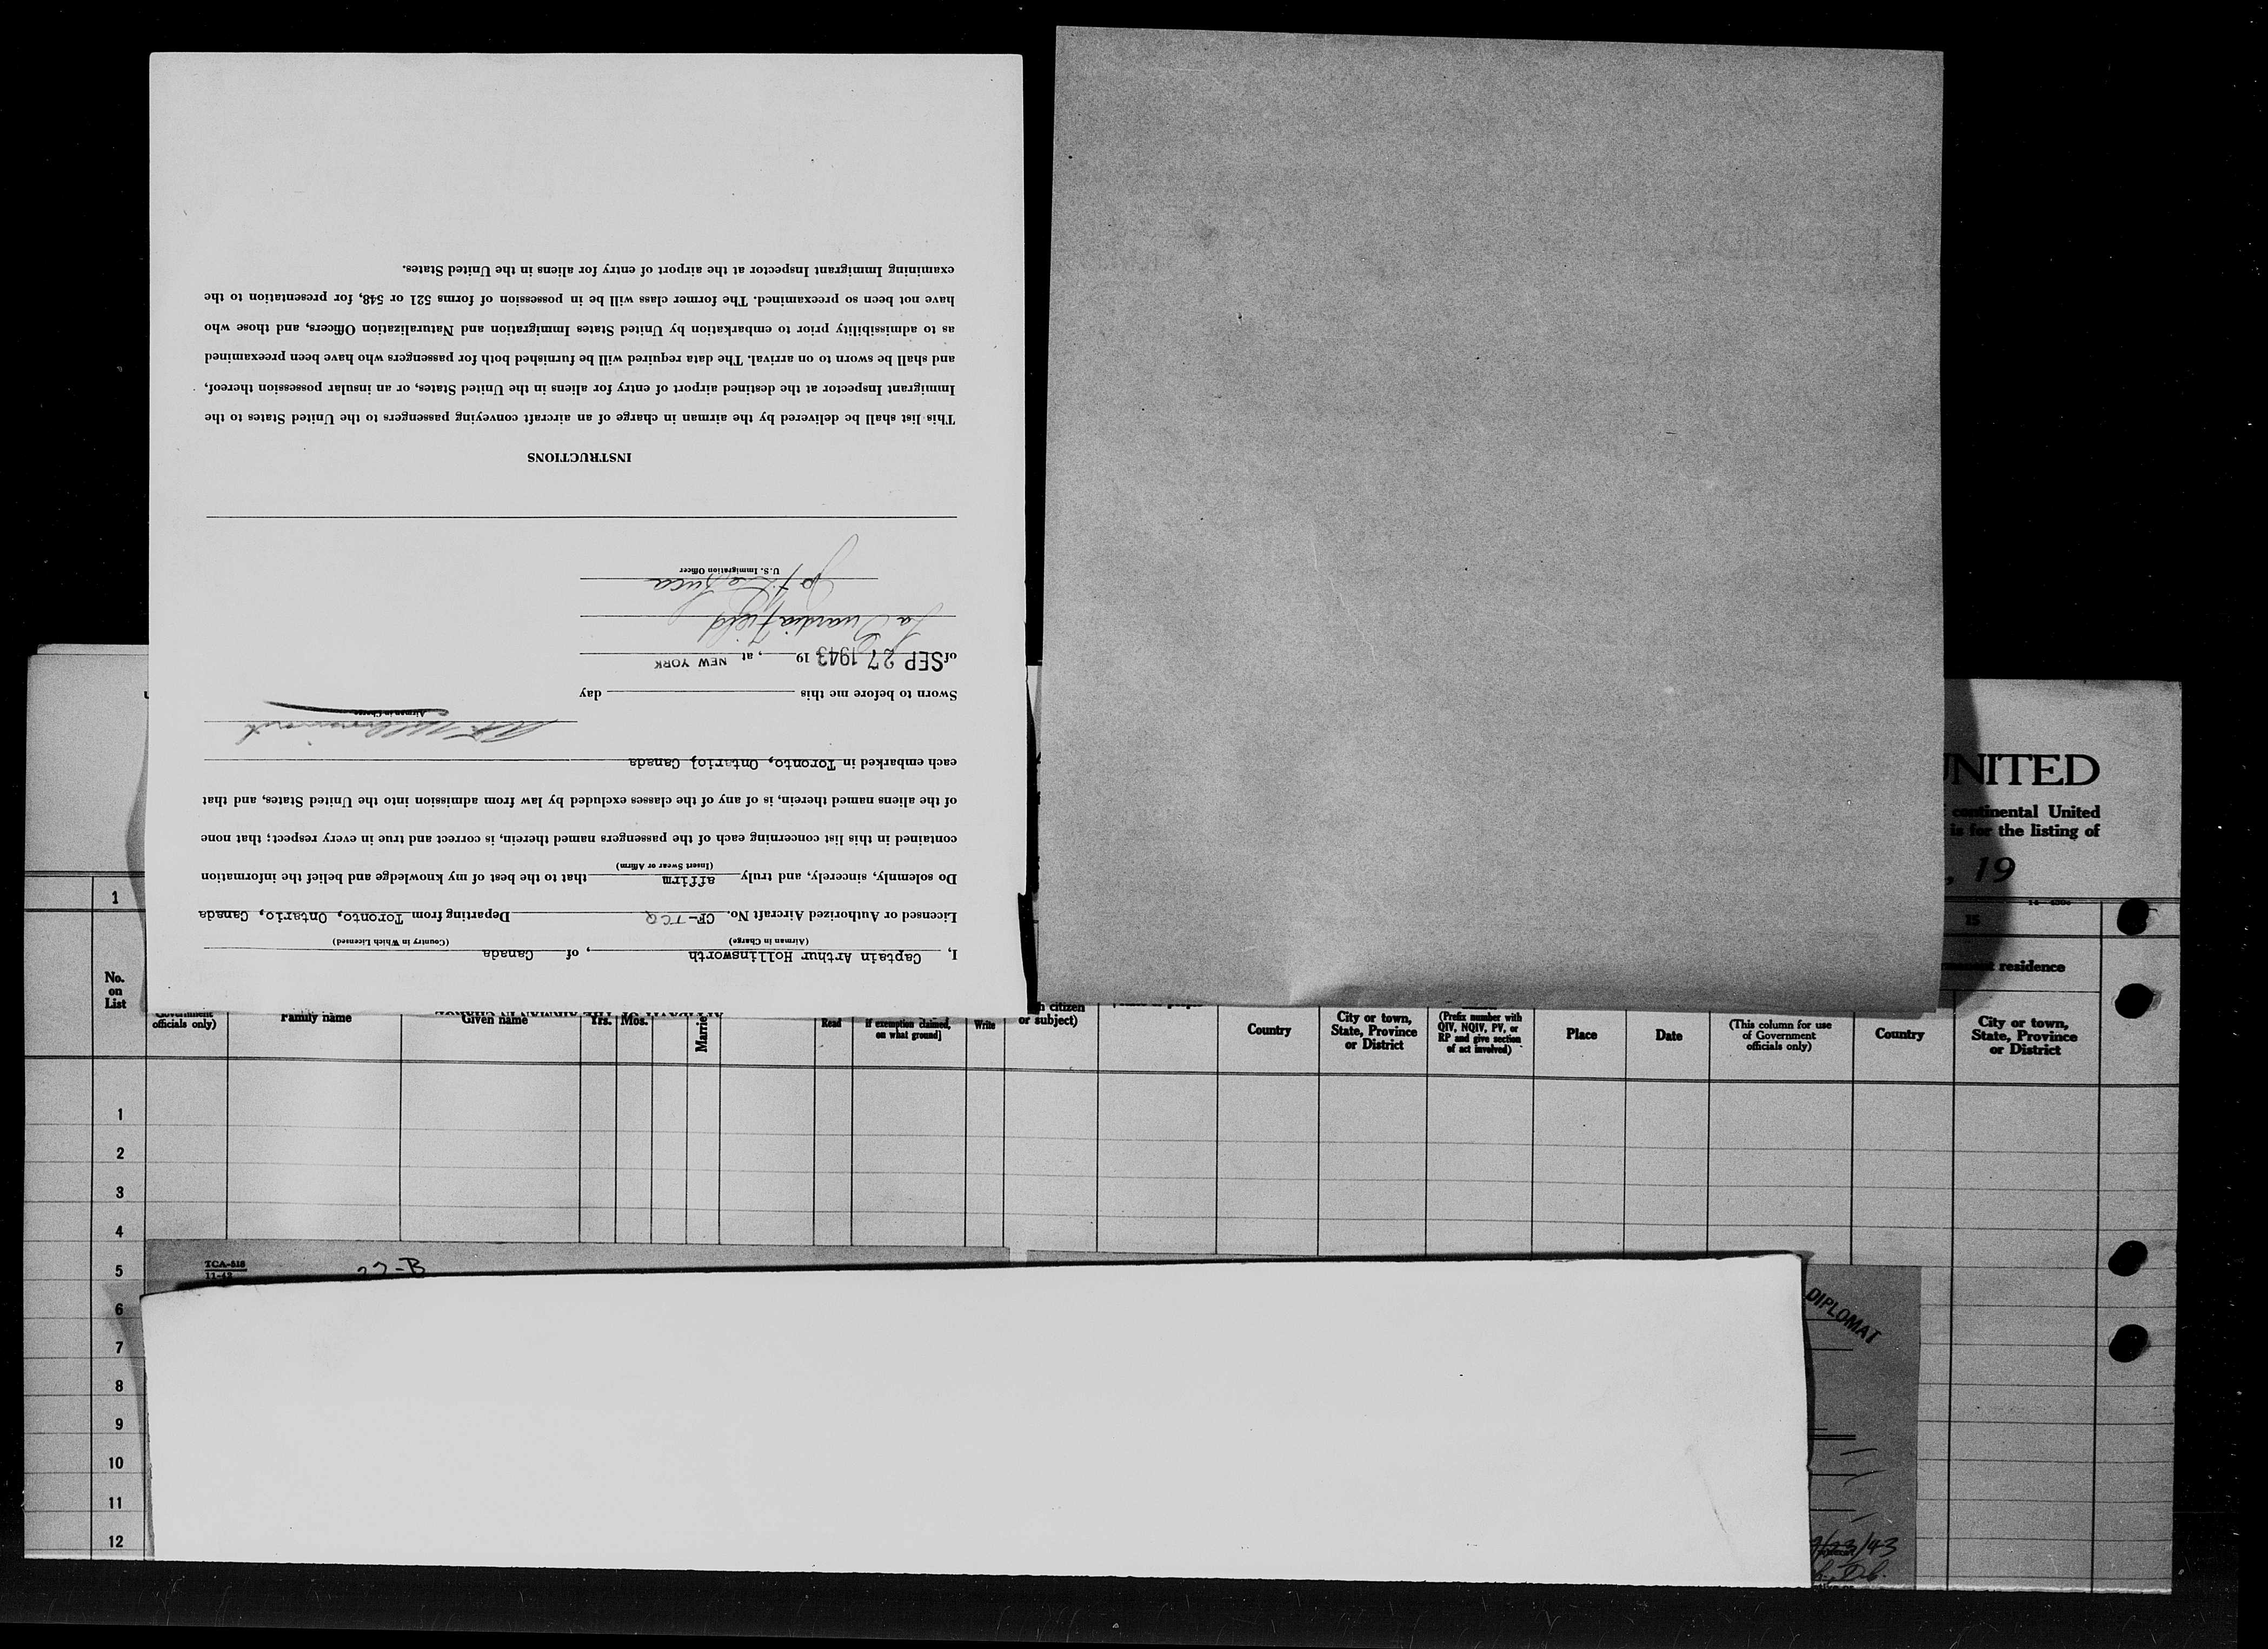 I, Captain Arthur Hollinsworth, of Canada
(Airman in Charge) (Country in Which Licensed)
Licensed or Authorized Aircraft No. CF-TCQ Departing from Toronto, Ontario, Canada
Do solemnly, sincerely, and truly affirm that to the best of my knowledge and belief the information
(Insert Swear or Affirm)
contained in this list concerning each of the passengers named therein, is correct and true in every respect; that none
of the aliens named therein, is of any of the classes excluded by law from admission into the United States, and that
each embarked in Toronto, Ontario, Canada
Airman in Charge
Sworn to before me this day
of SEP 27 1943 19 , at NEW YORK
La Guardia Field
U.S. Immigration Officer
INSTRUCTIONS
This list shall be delivered by the airman in charge of an aircraft conveying passengers to the United States to the
Immigrant Inspector at the destined airport of entry for aliens in the United States, or an insular possession thereof,
and shall be sworn to on arrival. The data required will be furnished both for passengers who have been preexamined
as to admissibility prior to embarkation by United States Immigration and Naturalization Officers, and those who
have not been so preexamined. The former class will be in possession of forms 521 or 548, for presentation to the
examining Immigrant Inspector at the airport of entry for aliens in the United States.
UNITED
continental United
is for the listing of
, 19
1
15
residence
No.
on
List
Government
officials only)
Family name
Given name
Yrs.
Mos.
Married
Read
If exemption claimed,
on what ground]
Write
citizen
or subject)
Country
City or town,
State, Province
or District
(Prefix number with
QIV, NQIV, PV, or
RP and give section
of act involved)
Place
Date
(This column for use
of Government
officials only)
Country
City or town,
State, Province
or District
1
2
3
4
5
6
7
8
9
10
11
12
TCA-518
11-42
22-B
DIPLOMAT
9/23/43